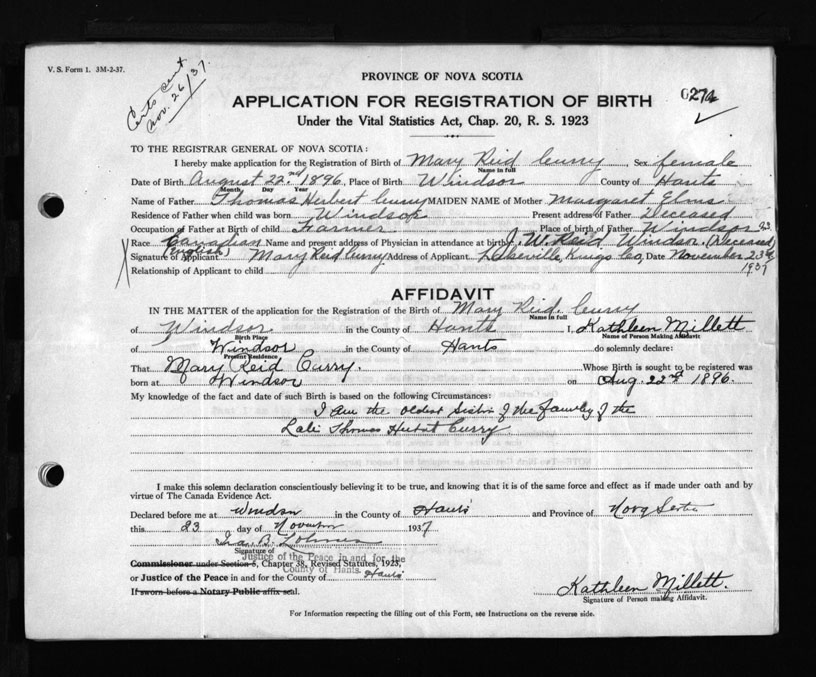 V. S. Form 1. 3M-2-37.
Certs sent
Nov. 26/37.
PROVINCE OF NOVA SCOTIA
APPLICATION FOR REGISTRATION OF BIRTH
Under the Vital Statistics Act, Chap. 20, R. S. 1923
TO THE REGISTRAR GENERAL OF NOVA SCOTIA:
I hereby make application for the Registration of Birth of Mary Reid Curry, Sex female
Name in full
Date of Birth August 22nd 1896, Place of Birth Windsor County of Hants
Month Day Year
Name of Father Thomas Herbert Curry MAIDEN NAME of Mother Margaret Elms
Residence of Father when child was born Windsor Present address of Father Deceased
Occupation of Father at Birth of child Farmer Place of birth of Father Windsor
Race Canadian Name and present address of Physician in attendance at birth J. W. Reid Windsor. (Deceased)
(English)
Signature of Applicant Mary Reid Curry Address of Applicant Lakeville, Kings Co, Date November 23rd
1937
Relationship of Applicant to child
AFFIDAVIT
IN THE MATTER of the application for the Registration of the Birth of Mary Reid. Curry
Name in full
of Windsor in the County of Hants I, Kathleen Millett
Birth Place Name of Person Making Affidavit
of Windsor in the County of Hants do solemnly declare:
Present Residence
That Mary Reid Curry. Whose Birth is sought to be registered was
born at Windsor on Aug. 22nd 1896.
My knowledge of the fact and date of such Birth is based on the following Circumstances:
I am the oldest Sister of the family of the
Late Thomas Herbert Curry
I make this solemn declaration conscientiously believing it to be true, and knowing that it is of the same force and effect as if made under oath and by
virtue of The Canada Evidence Act.
Declared before me at Windsor in the County of Hants and Province of Nova Scotia
this 23 day of November 1937
Ira B. Lohnes
Signature of
Justice of the Peace in and for the
Commissioner under Section 5, Chapter 38, Revised Statutes, 1923,
County of Hants.
or Justice of the Peace in and for the County of Hants
If sworn before a Notary Public affix seal.
Kathleen Millett.
Signature of Person making Affidavit.
For Information respecting the filling out of this Form, see Instructions on the reverse side.